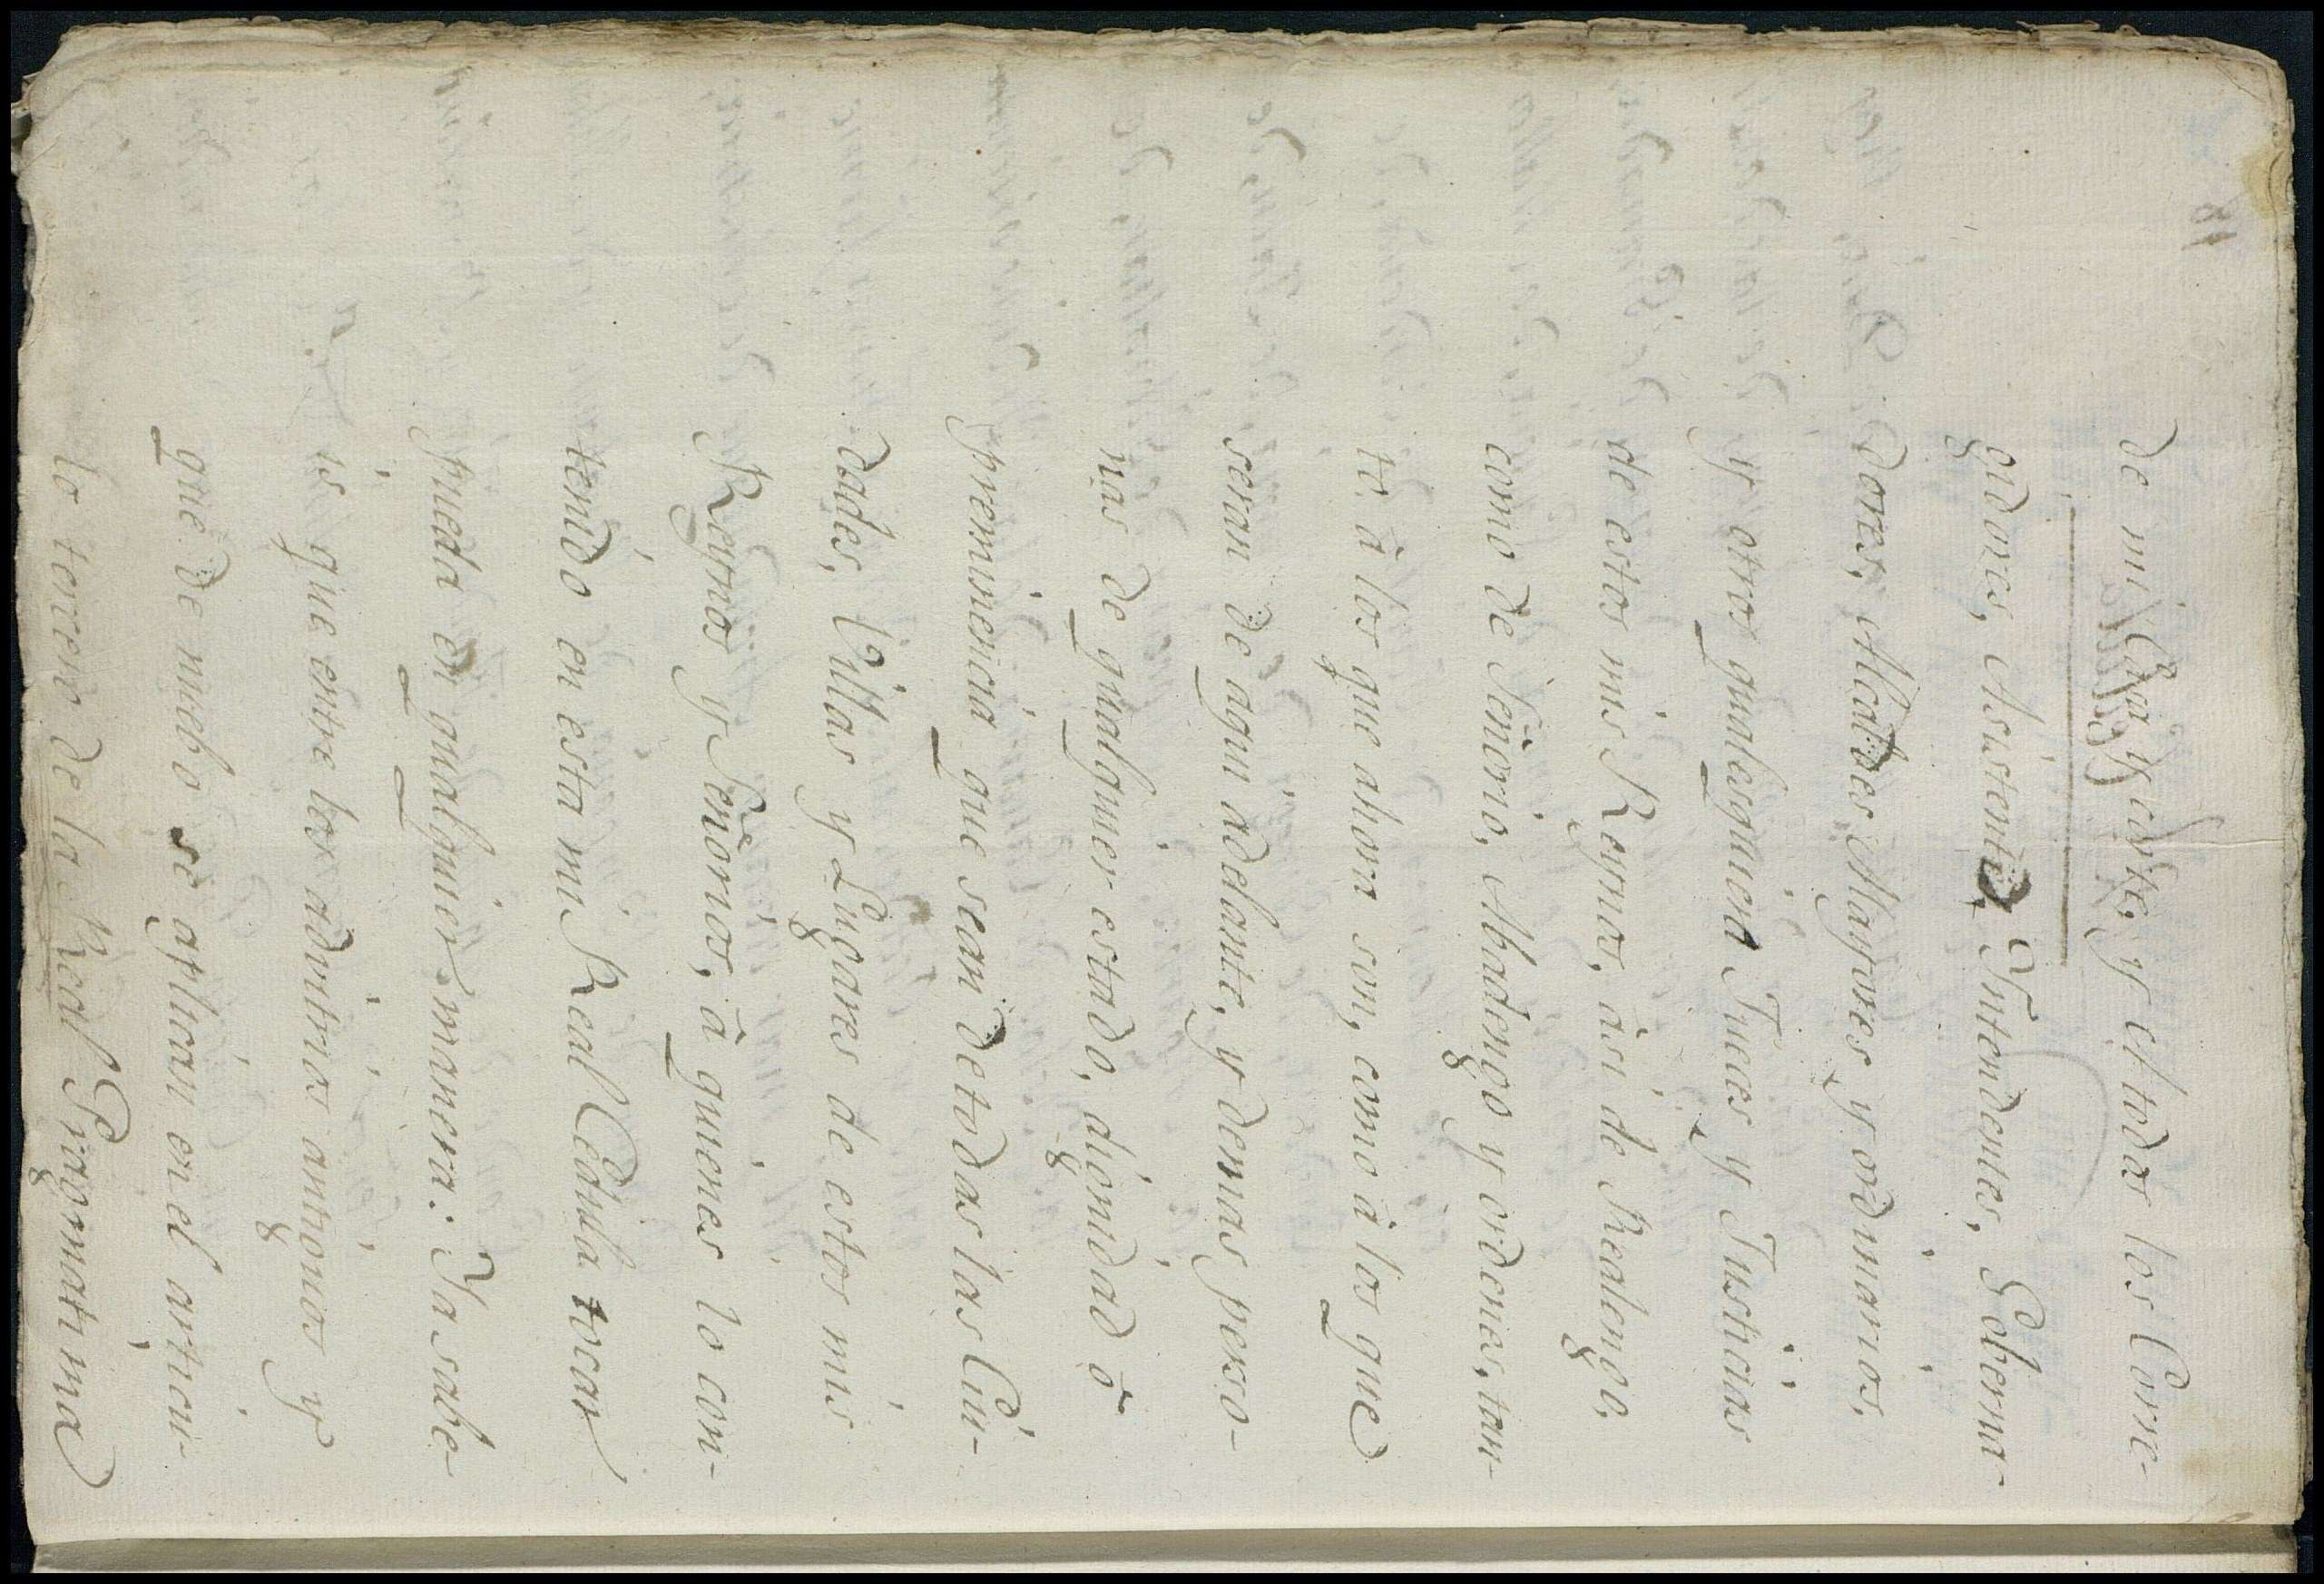 de mi Casa y Corte, y a todos los Corre-
gidores, Asistente, Yntendentes, Goberna-
dores, Alcaldes Mayores y ordinarios,
y otros qualesquiera Jueces y Justicias
de estos mis Reynos, asi de Realengo,
como de Señorio, Abadengo y ordenes, tan-
to à los que ahora son, como à los que
seran de aqui adelante, y demas perso-
nas de qualquier estado, dignidad ò
preminencia que sean de todas las Ciu-
dades, Villas y Lugares de estos mis
Reynos y Señorios, à quienes lo con-
tenido en esta mi Real Cedula tocar
pueda en qualquier manera: Ya sabe-
is que entre los advitrios antiguos y
que de nuebo se aplican en el articu-
lo tercero de la Real Pragmatica